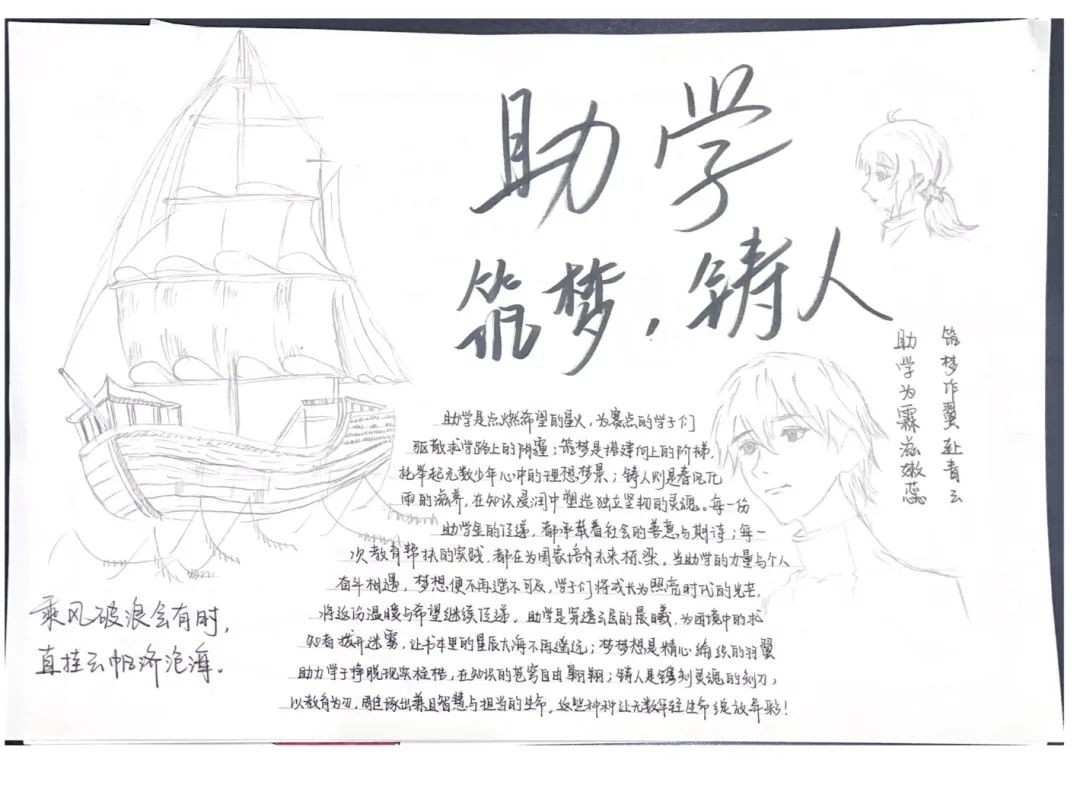 助学
筑梦，铸人
筑梦作翼赴青云
助学为霖滋嫩蕊
助学是点燃希望的星火，为寒点的学子们
驱散求学路上的阴霾；筑梦是搭建向上的阶梯，
托举起无数少年心中的理想梦景；铸人则是春风化
雨的滋养，在知识浸润中塑造独立坚韧的灵魂。每一份
助学金的传递，都承载着社会的善意与期待；每一
次教育帮扶的实践，都在为国家培育未来栋梁。当助学的力量与个人
奋斗相遇，梦想便不再遥不可及，学子们将成长为照亮时代的光芒，
将这份温暖与希望继续传递。助学是穿透云层的晨曦，为困境中的求
知者拨开迷雾，让书本里的星辰大海不再遥远；梦梦想是精心编织的羽翼
助力学子挣脱现实桎梏，在知识的苍穹自由翱翔；铸人是镌刻灵魂的刻刀，
以教育为刃，雕琢出兼具智慧与担当的生命。这些种种让无数年轻生命绽放异彩！
乘风破浪会有时，
直挂云帆济沧海。